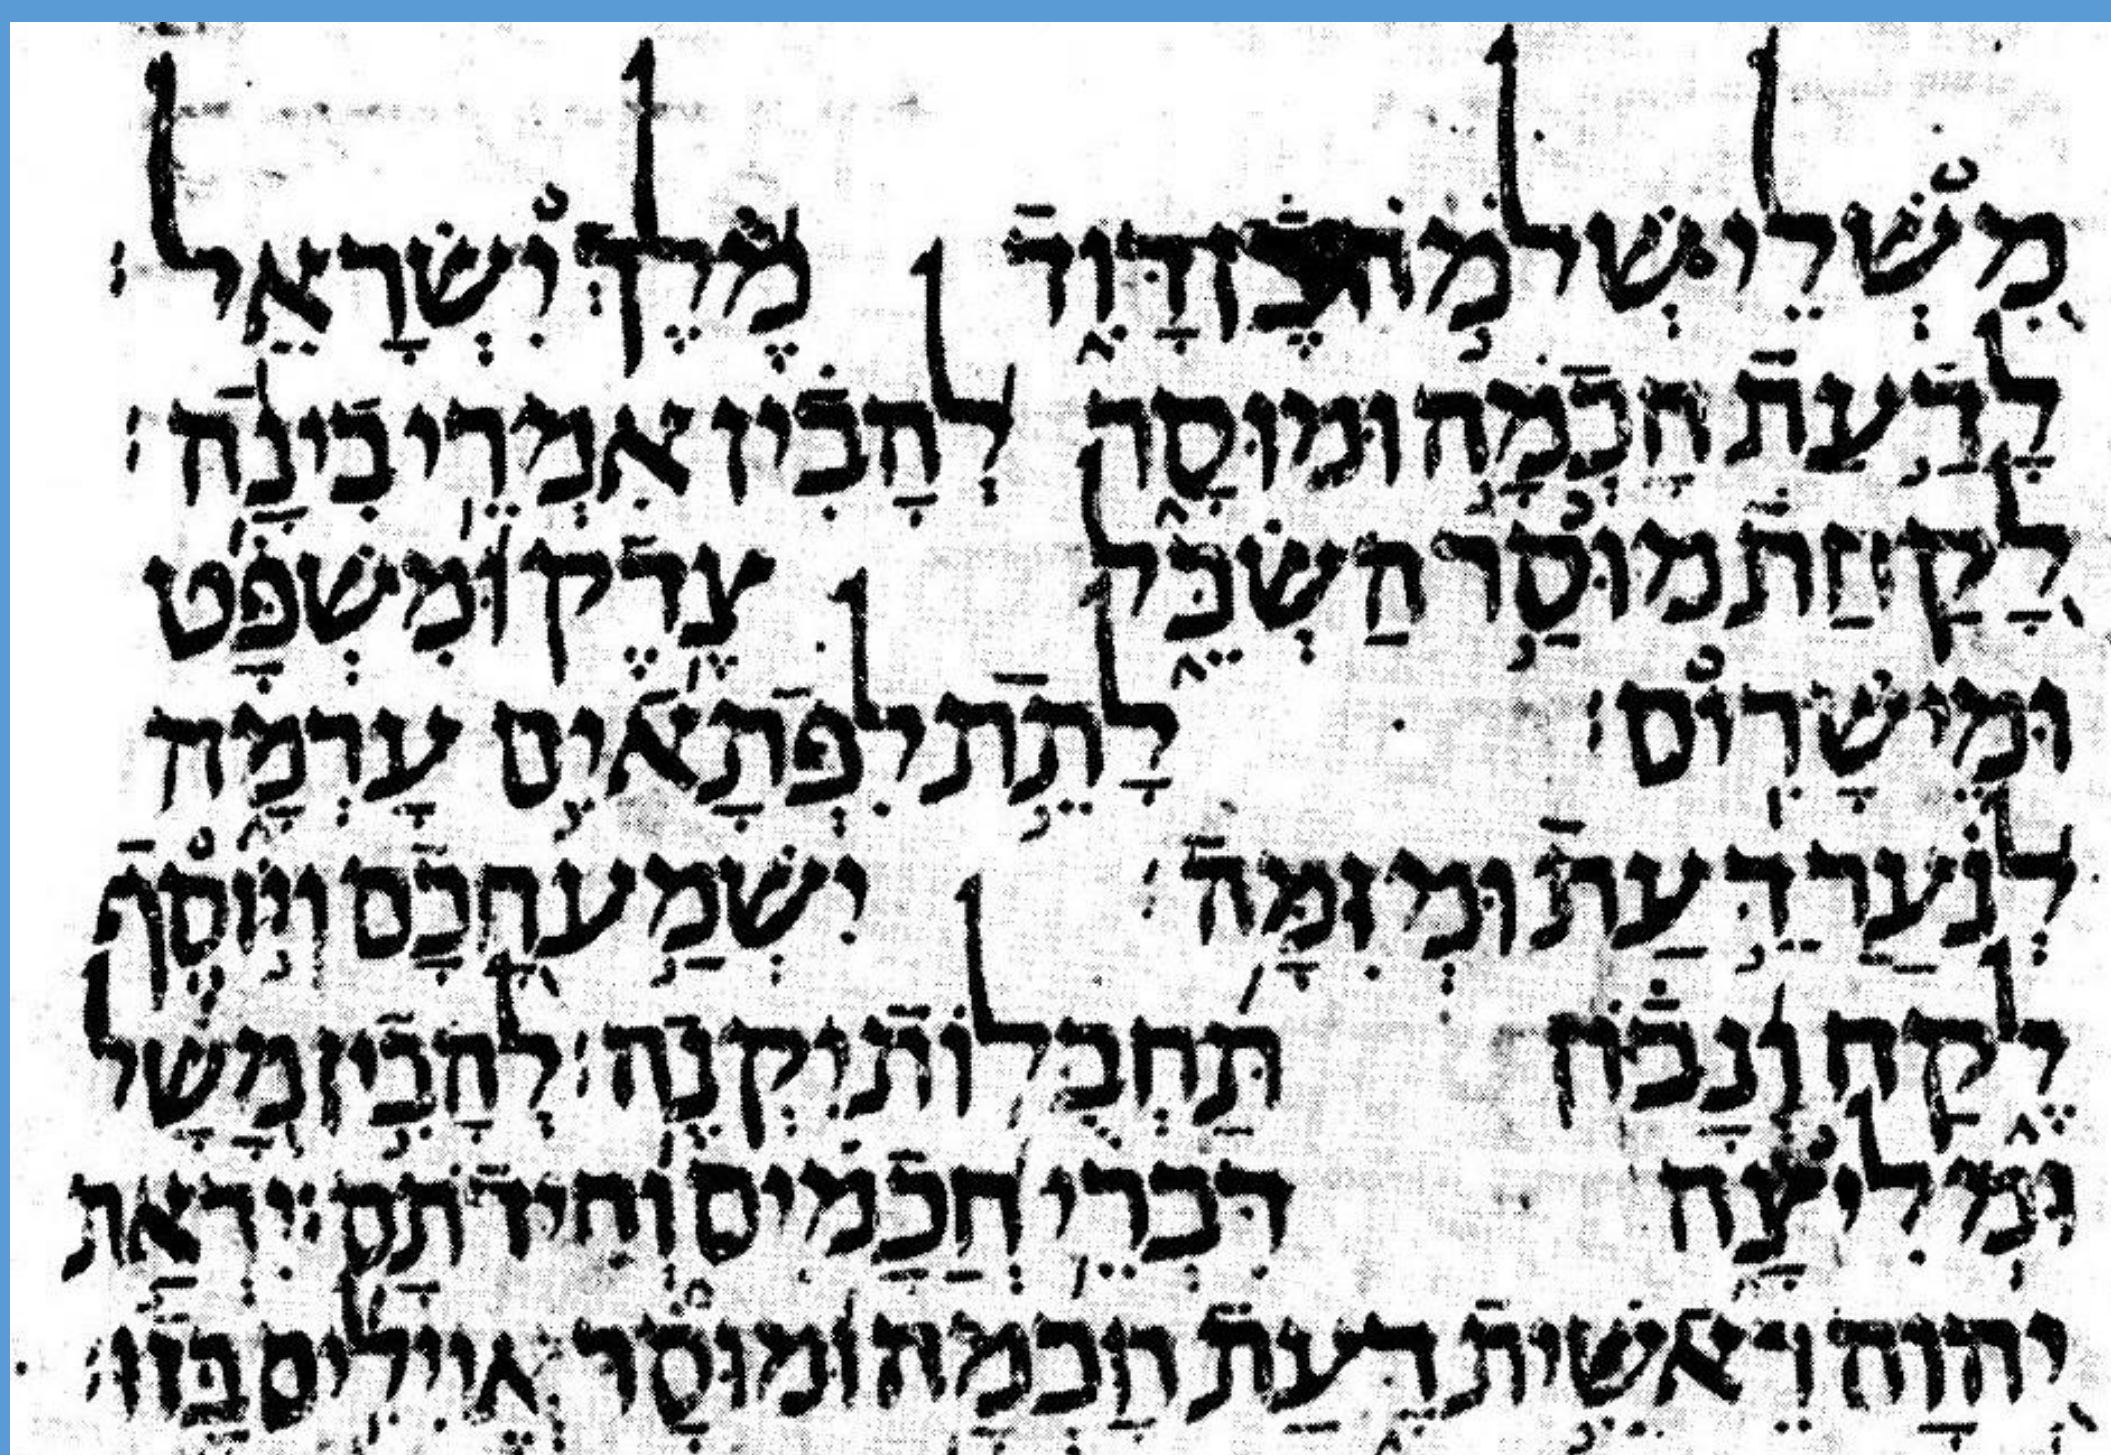 מִשְׁלֵי שְׁלֹמֹה בֶן דָּוִד מֶלֶךְ יִשְׂרָאֵל׃
לָדַעַת חָכְמָה וּמוּסָר לְהָבִין אִמְרֵי בִינָה׃
לָקַחַת מוּסַר הַשְׂכֵּל צֶדֶק וּמִשְׁפָּט
וּמֵישָׁרִים׃ לָתֵת לִפְתָאִים עָרְמָה
לְנַעַר דַּעַת וּמְזִמָּה׃ יִשְׁמַע חָכָם וְיוֹסֶף
לֶקַח וְנָבוֹן תַּחְבֻּלוֹת יִקְנֶה׃ לְהָבִין מָשָׁל
וּמְלִיצָה דִּבְרֵי חֲכָמִים וְחִידֹתָם׃ יִרְאַת
יְהוָה רֵאשִׁית דָּעַת חָכְמָה וּמוּסָר אֱוִילִים בָּזוּ׃